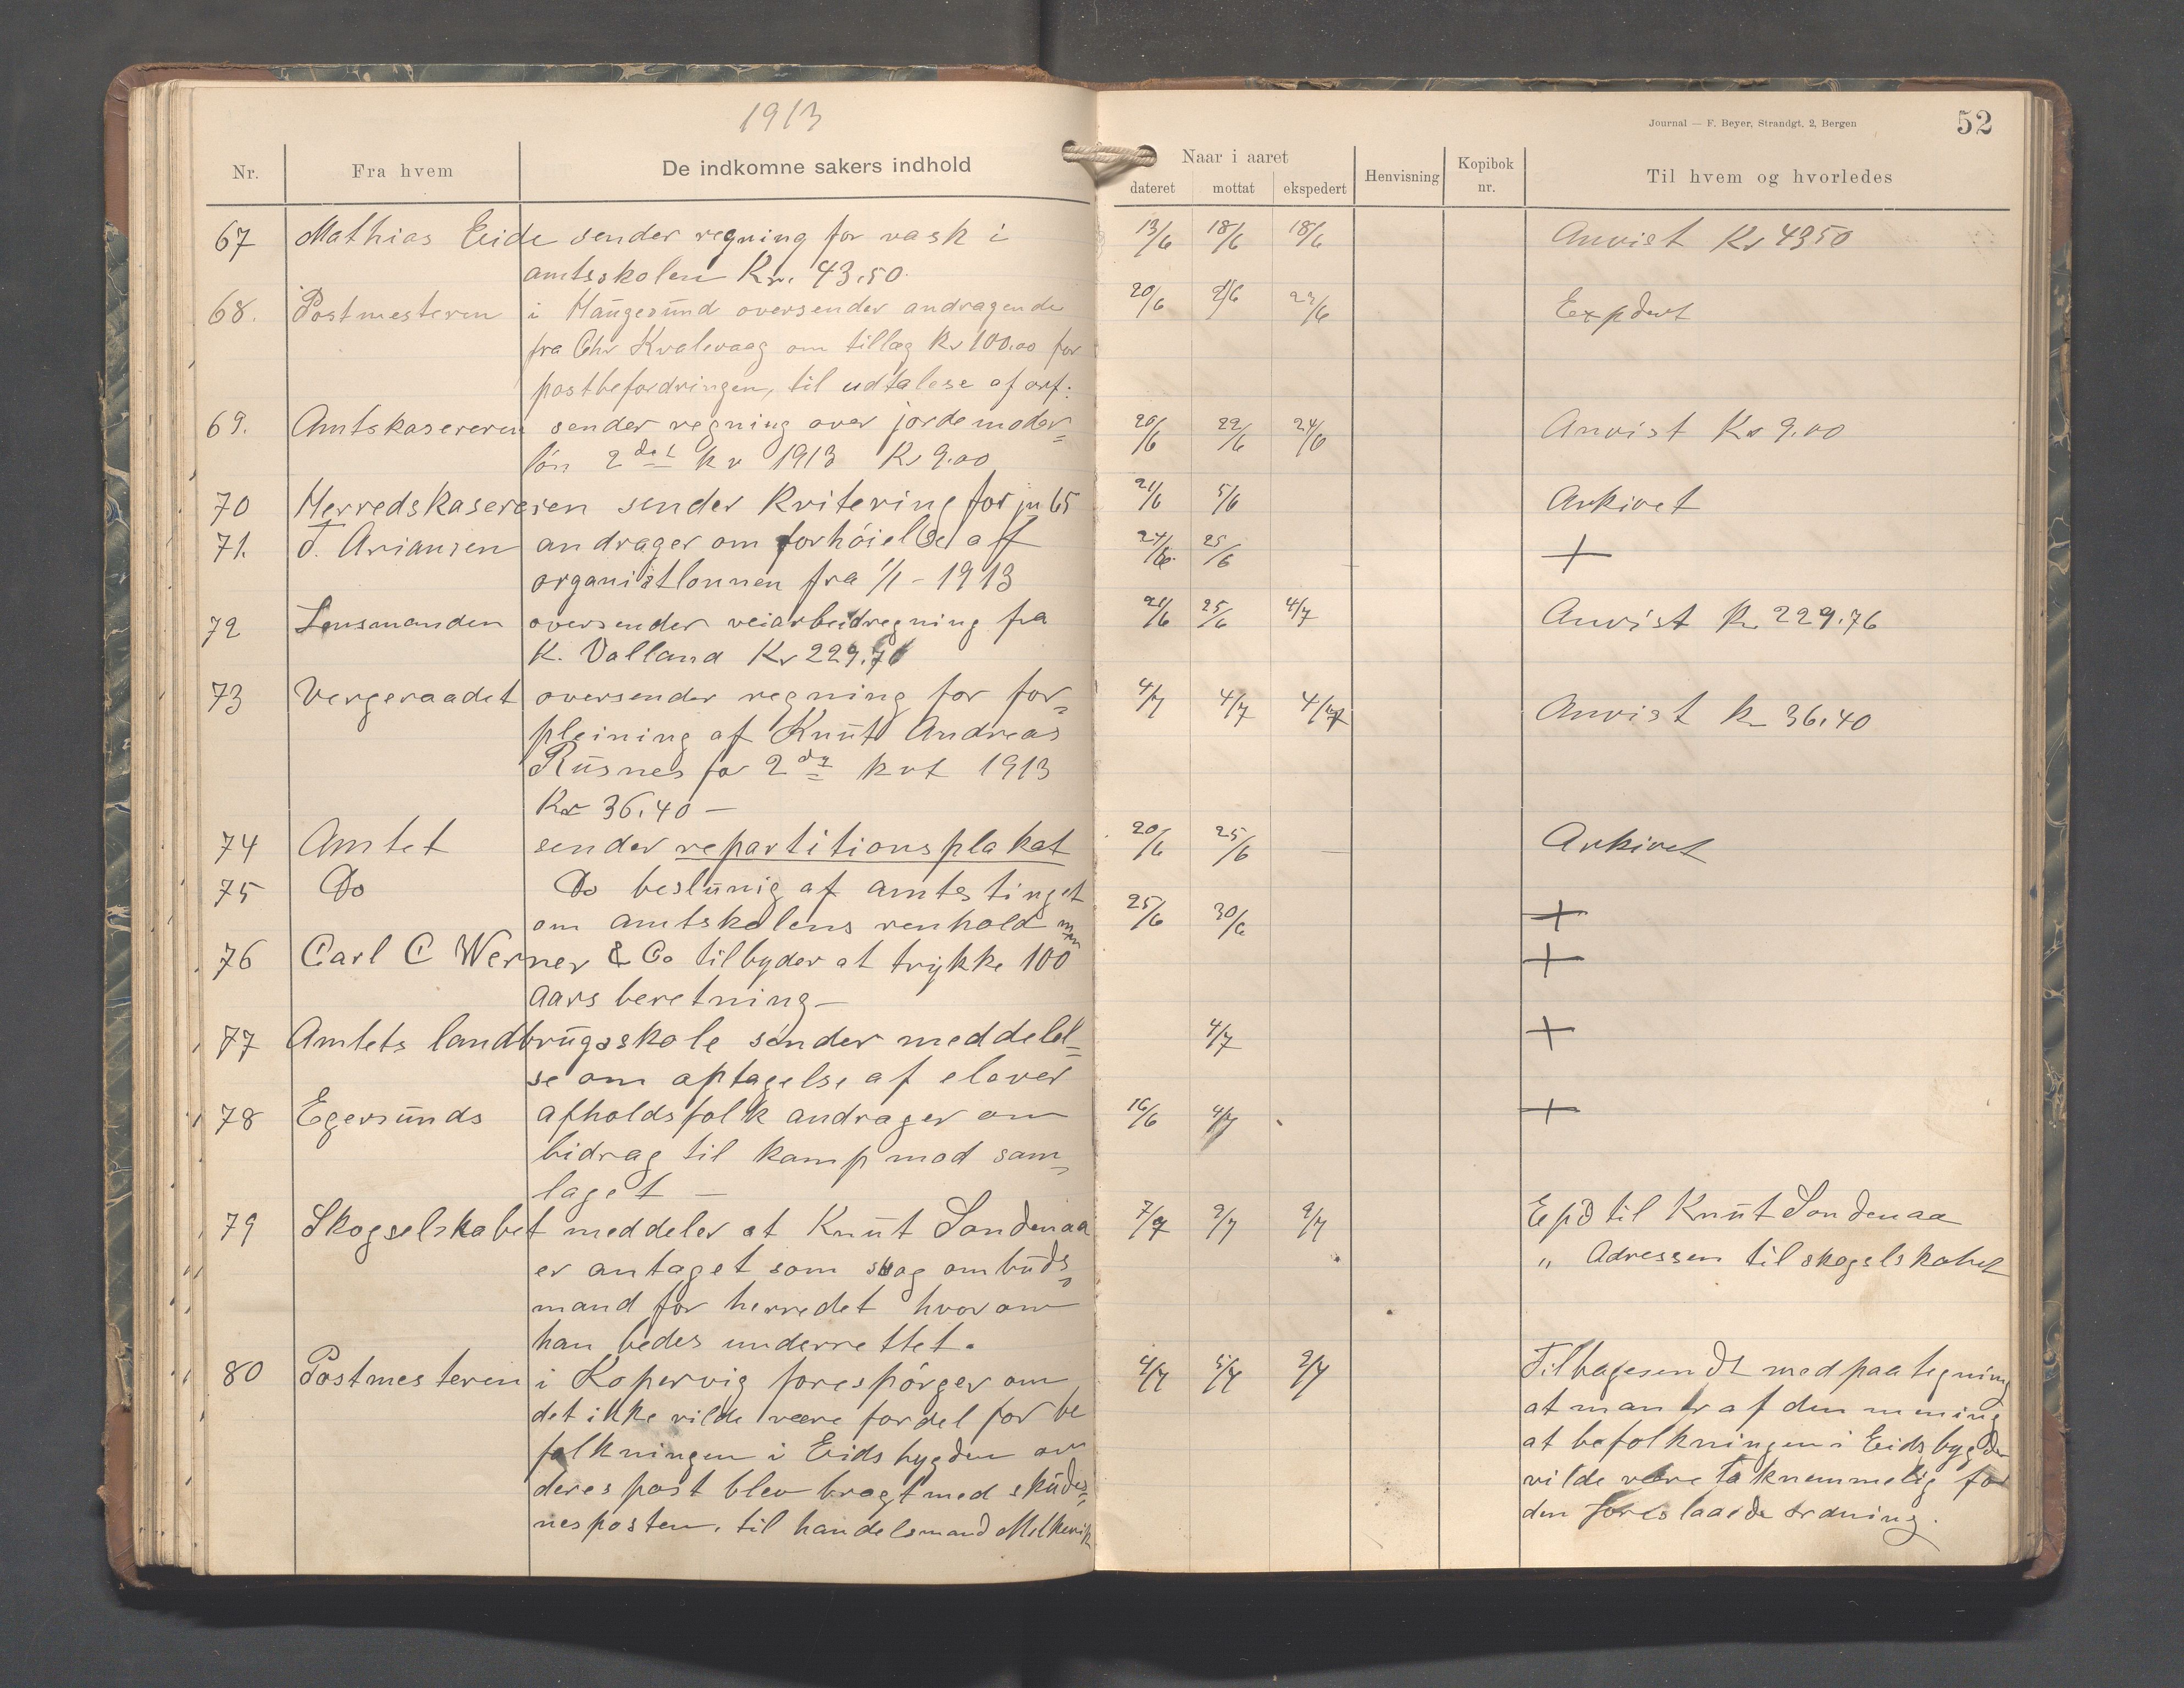 1913
Journal — F. Beyer, Strandgt. 2, Bergen
52
Nr. Fra hvem De indkomne sakers indhold Naar i aaret dateret mottat ekspedert Henvisning Kopibok nr. Til hvem og hvorledes
67 Mathias Eide sender regning for vask i 13/6 18/6 18/6 Anvist Kr 4350
amtsskolen Kr. 43.50.
68. Postmesteren i Haugesund oversender andragende 20/6 23/6 Expdert
fra Chr Kvalevaag om tillæg Kr 100.00 for
postbefordringen, til udtalese af orf.
69. Amtskasereren sender regning over jordemoder= 20/6 22/6 24/6 Anvist Kr 9.00
løn 2det kv 1913 Kr 9.00
70 Herredskasereren sender kvitering for jn 65 21/6 5/6 Arkivet
71. T. Ariansen andrager om forhöielse aff 24/6 25/6 +
organistlonnen fra 1/1 - 1913
72 Lensmanden oversender veiarbeidregning fra 21/6 25/6 4/7 Anvist Kr 229.76
K. Valland Kr 229.76
73 Vergeraadet oversender regning for for= 4/7 4/7 4/7 Anvist Kr 36.40
pleining af Knut Andreas
Rusnes for 2det kvt 1913
Kr 36.40 —
74 Amtet sender repartitionsplakat 20/6 25/6 — Arkivet
75 Do Do beslunig af amtstinget
om amtskolens renhold mm 25/6 30/6 +
76 Carl C Werner & Co tilbyder at trykke 100 +
aars beretning —
77 Amtets landbrugsskole sender meddelel= 4/7 +
se om optagelse af elever
78 Egersunds afholdsfolk andrager om 16/6 4/7 +
bidrag til kamp mod sam=
laget —
79 Skogselskabet meddeler at Knut Sandenaa 7/7 9/7 9/7 Epd til Knut Sandenaa
er antaget som skog ombuds= " Adressen til skogselskabet
mand for herredet hvorom
han bedes underrettet.
80 Postmesteren i Kopervig forespörger om 4/7 5/7 9/7 Tilbagesendt med paategning
det ikke vilde være fordel for be at man er af den mening
folkningen i Eidsbygden om at befolkningen i Eidsbygden
deres post blev bragt med skudes= vilde være taknemmelig for
nesposten. til handelsmand Melkevik den foreslaaede ordning.